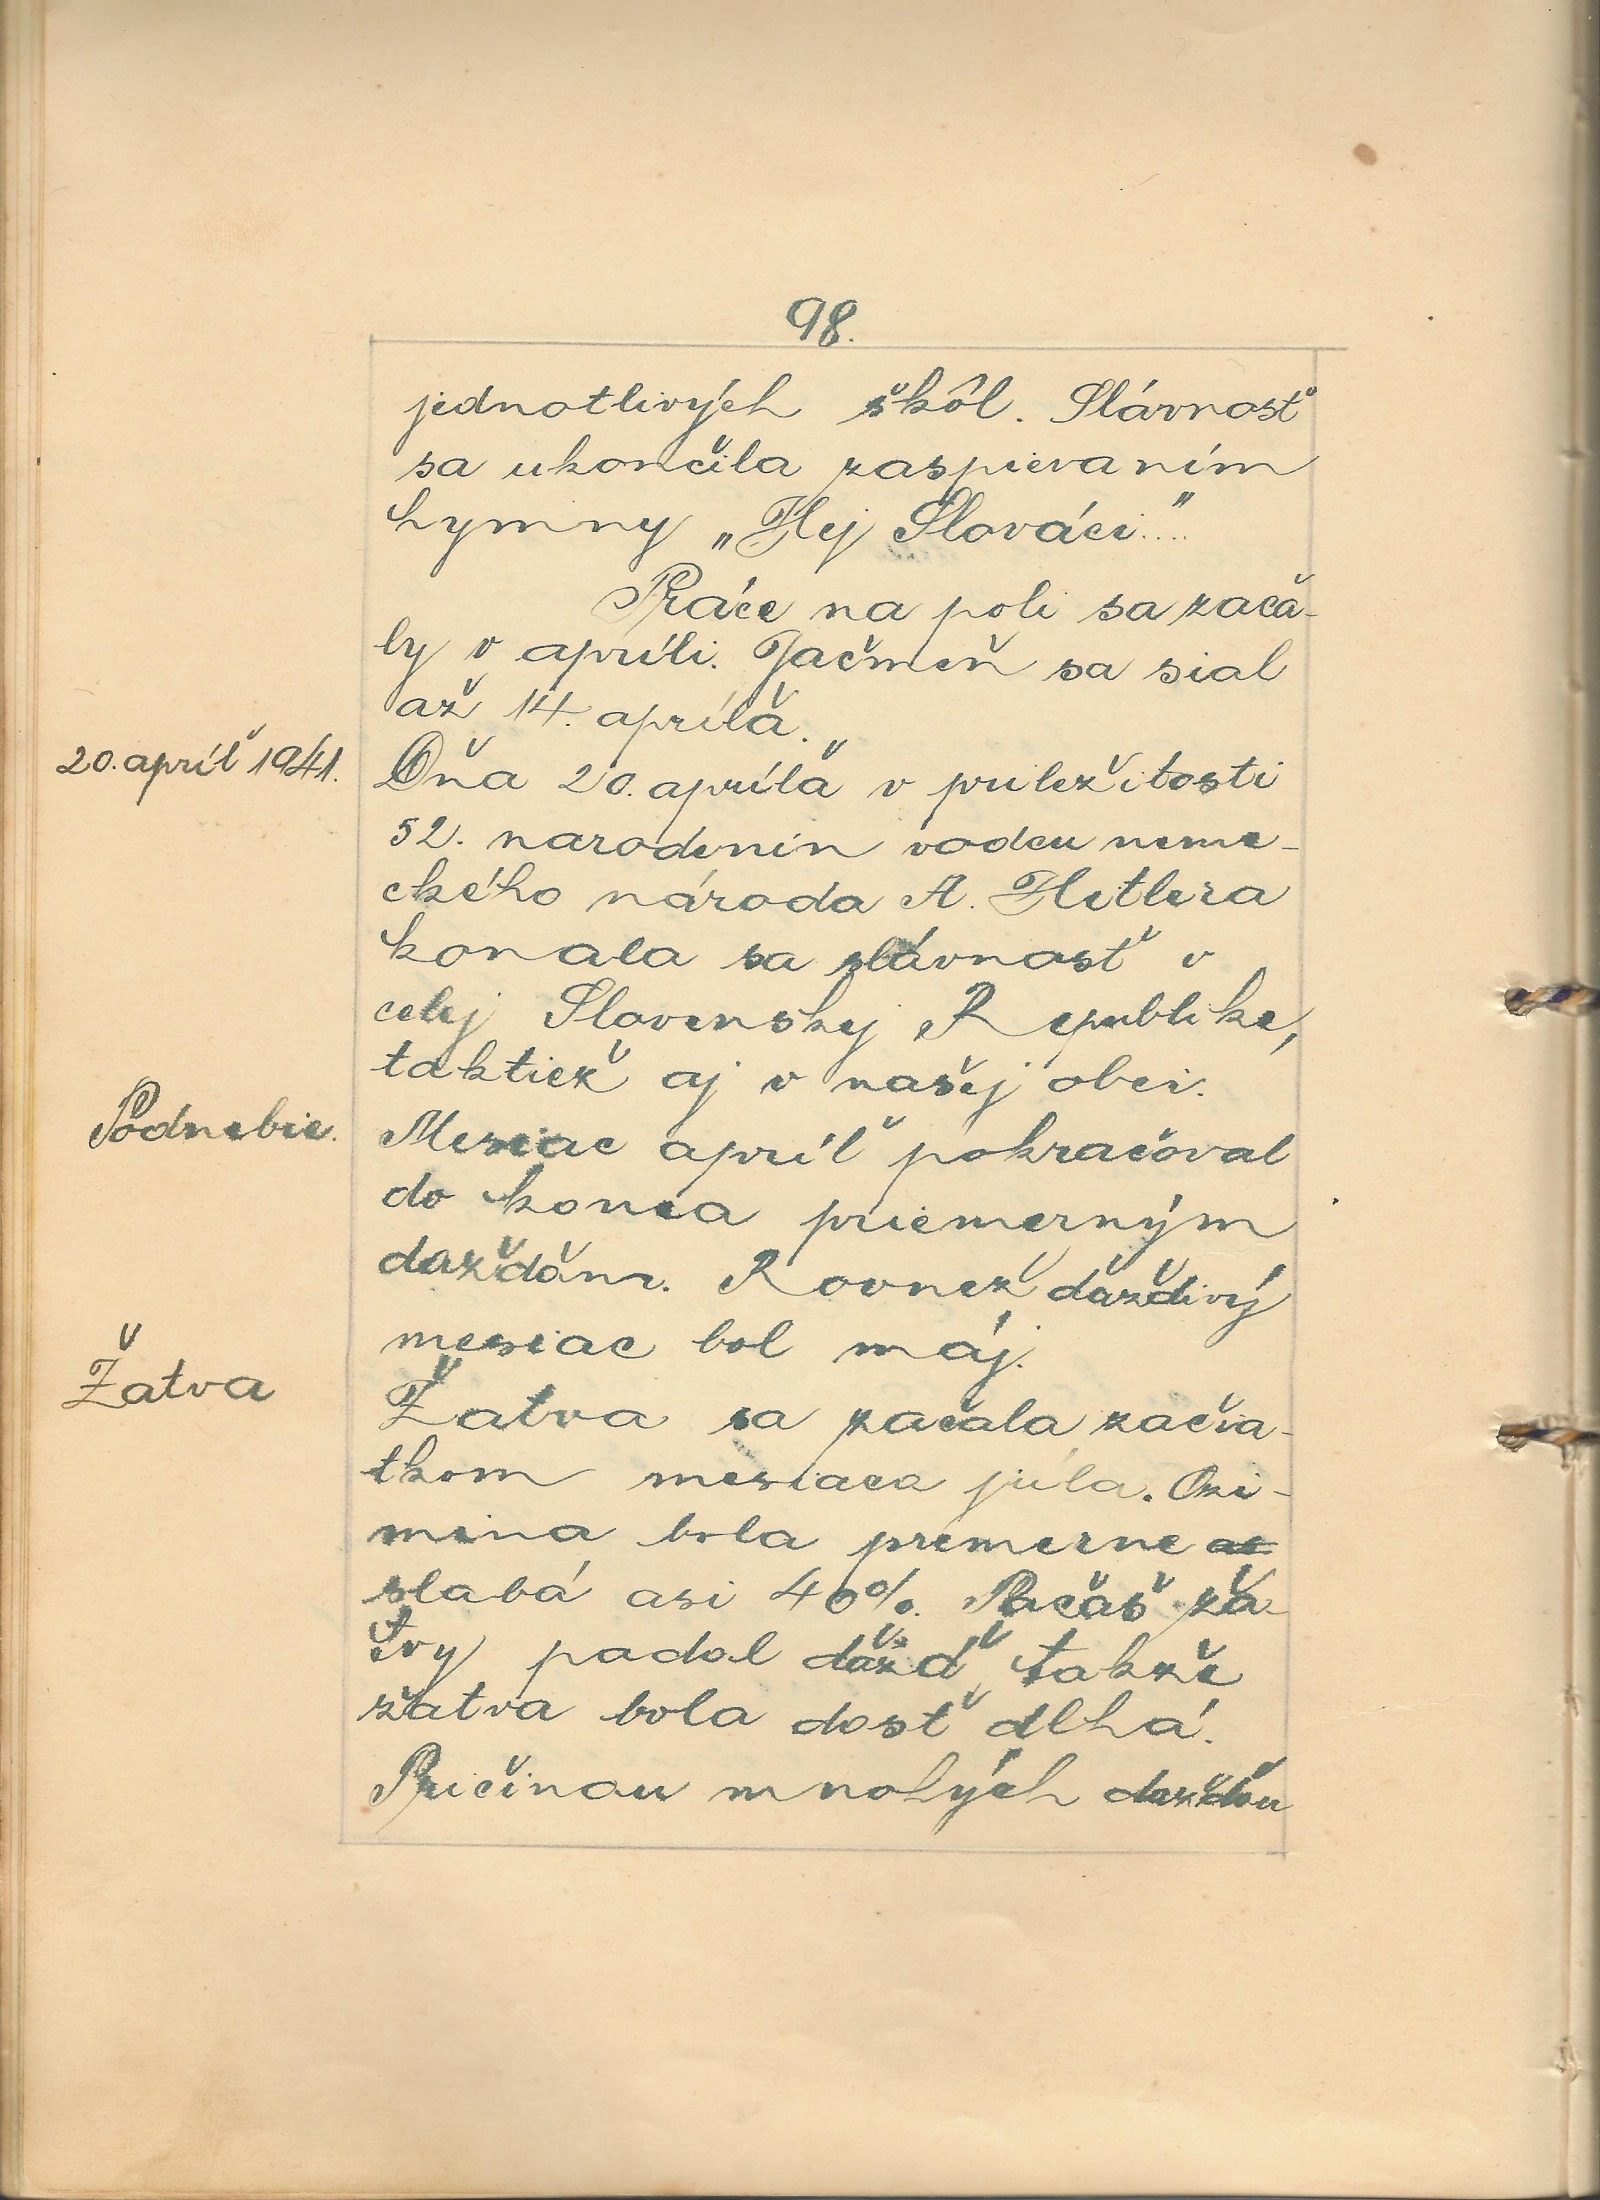 98.
jednotlivých škôl. Slávnosť
sa ukončila zaspievaním
hymny „Hej Slováci...."
Práce na poli sa zača-
ly v apríli. Jačmeň sa sial
až 14. apríľa.
20. apríľ 1941.
Dňa 20. apríľa v príležitosti
52. narodenín vodcu neme-
ckého národa A. Hitlera
konala sa slávnosť v
celej Slovenskej Republike,
taktiež aj v našej obci.
Podnebie.
Mesiac apríľ pokračoval
do konca priemerným
dažďami. Rovnež daždivý
mesiac bol máj.
Žatva
Žatva sa začala začia-
tkom mesiaca júla. Ozi-
mina bola premerne
slabá asi 40%. Pačas ža-
tvy padal dážď, takže
žatva bola dosť dlhá.
Príčinou mnohých